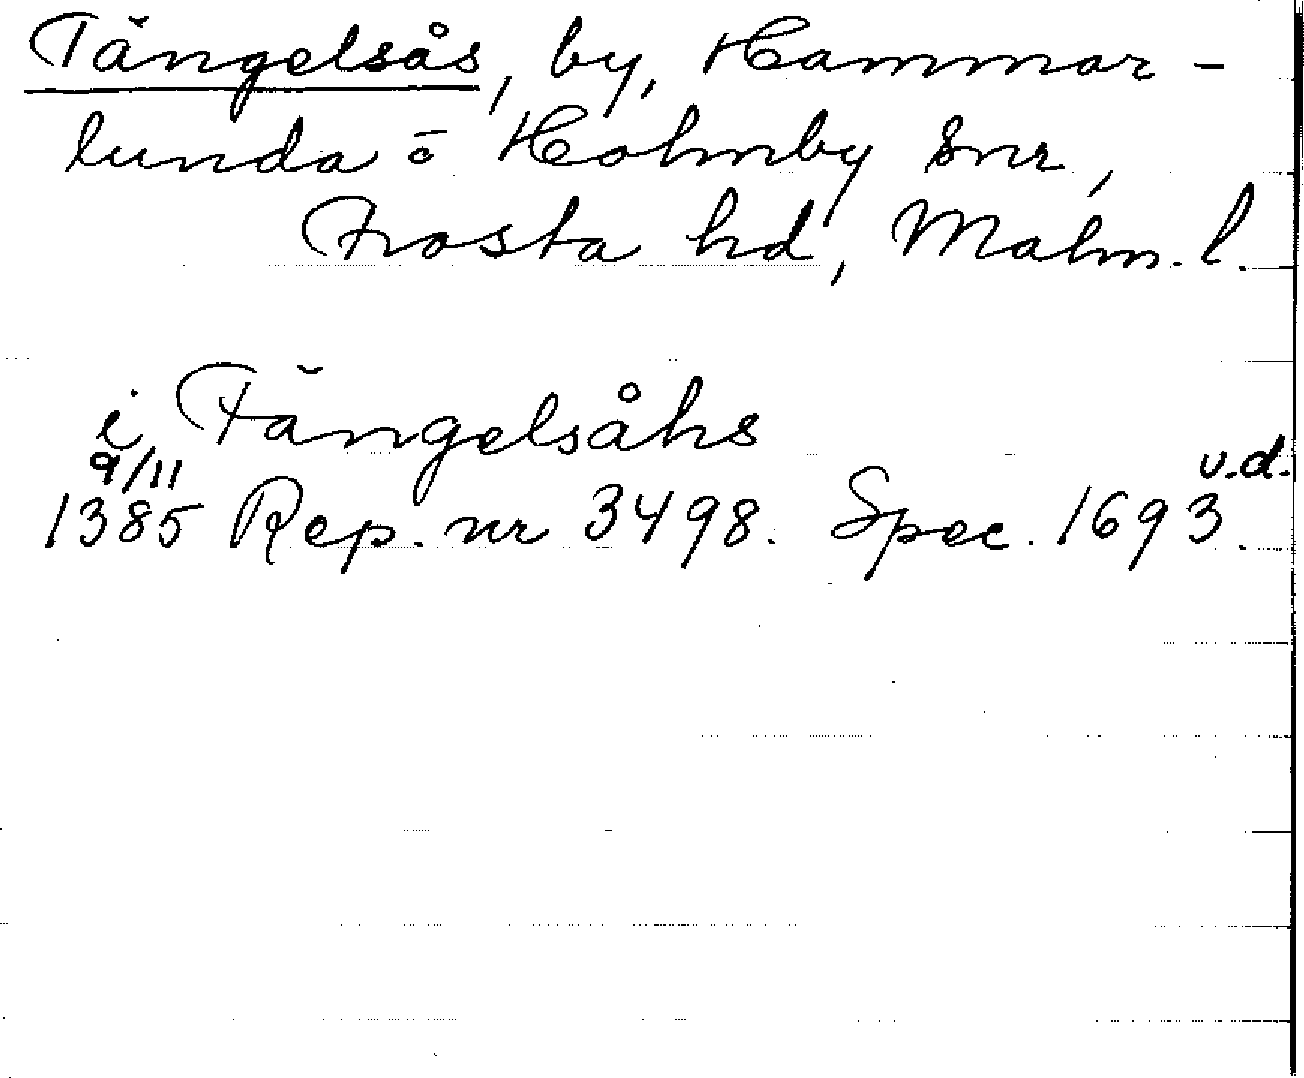 Tängelsås, by, Hammar-
lunda o Holmby snr,
Frosta hd, Malm. l.
i Tängelsåhs
9/11 v.d.
1385 Rep. nr 3498. Spec. 1693.